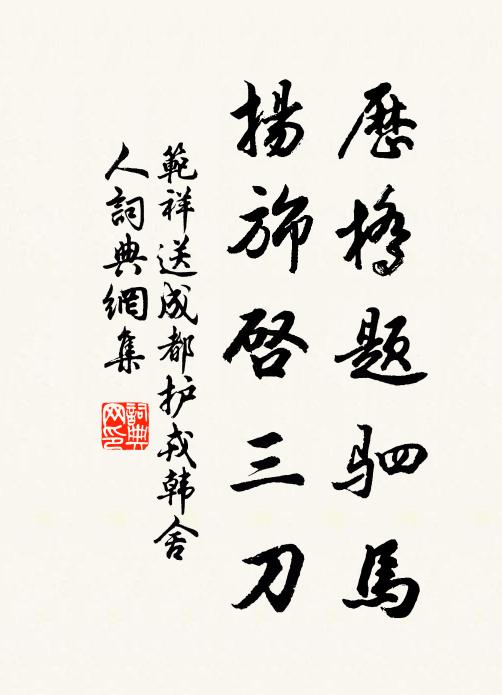 歷橋題驷馬
揚旆啓三刀
範祥送成都护戎韩舍
人詞典網集
詞典网印